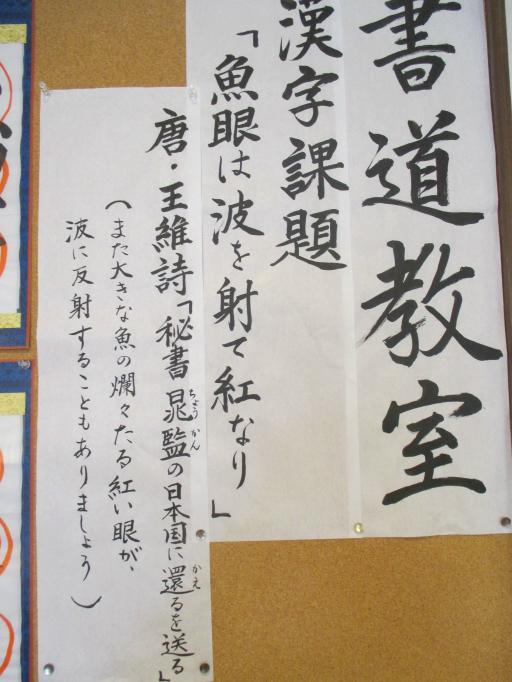 書道教室
漢字課題
「魚眼は波を射て紅なり」
唐・王維詩「秘書晁監の日本国に還るを送る」
ちょうかん
かえ
(また大きな魚の爛々たる紅い眼が、
波に反射することもありましょう)